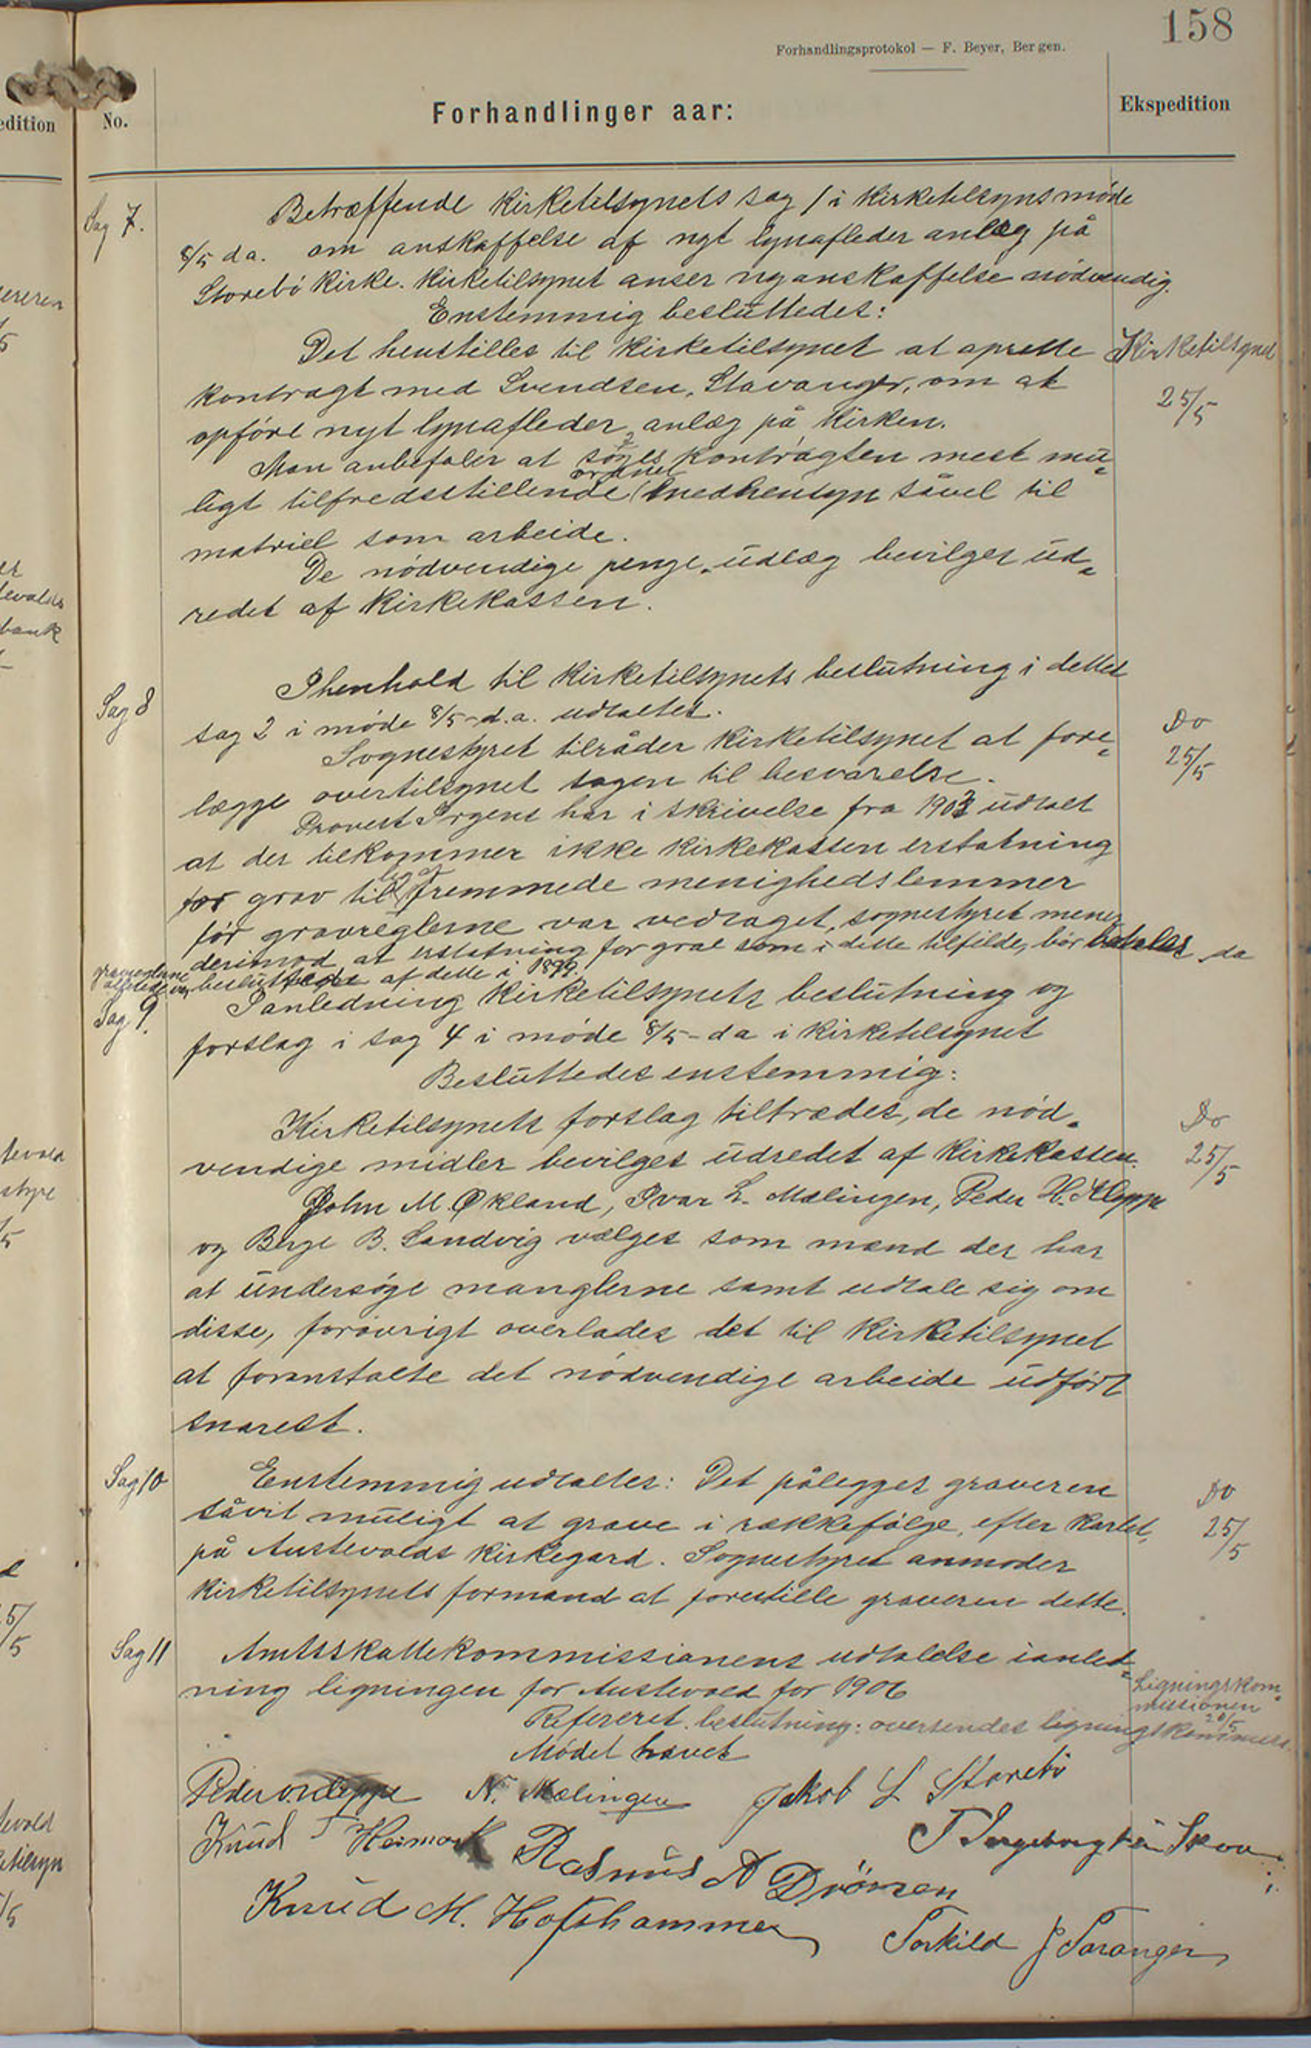 158
Forhandlingsprotokol — F. Beyer, Bergen.
edition No. Forhandlinger aar: Ekspedition
Sag 7. Betræffende Kirketilsynets sag 1 i Kirketilsynsmøde
8/5 d a. om anskaffelse af nyt lynafleder anlæg på
Storebö Kirke. Kirketilsynet anser nyanskaffelse nödvendig.
Enstemmig besluttedes:
Det henstilles til Kirketilsynet at oprette Kirketilsynet
kontragt med Svendsen, Stavanger, om at 25/5
opföre nyt lynafleder anlæg på Kirken.
Man anbefaler at søges kontragten mest mu-
ligt tilfredsstillende ordnet medhensyn såvel til
matriel som arbeide.
De nödvendige penge-udlæg bevilges ud-
redet af Kirkekassen.
Sag 8 Ihenhold til Kirketilsynets beslutning i dettes
sag 2 i møde 8/5-d.a. udtaltes. Do
Sognestyret tilråder Kirketilsynet at fore- 25/5
lægge overtilsynet sagen til besvarelse.
Provst Irgens har i skrivelse fra 1903 udtalt
at der tilkommer ikke Kirkekassen erstatning
for grav til fremmede menighedslemmer
för gravreglerne var vedtaget, sognestyret mener
derimod at erstatning for grav som i dette tilfælde, bör betales da
gravreglerne besluttedes af dette i 1899.
Sag 9. Ianledning Kirketilsynets beslutning og
forslag i sag 4 i møde 8/5-da i Kirketilsynet
Besluttedes enstemmig:
Kirketilsynets forslag tiltrædes, de nöd- Do
vendige midler bevilges udredet af Kirkekassen. 25/5
John M. Økland, Ivar L. Mælingen, Peder H. Kleppe
og Berge B. Sandvig vælges som mænd der har
at undersöge manglerne samt udtale sig om
disse, forövrigt overlades det til Kirketilsynet
at foranstalte det nödvendige arbeide udført
snarest.
Sag 10 Enstemmig udtaltes: Det pålegges graveren Do
såvit muligt at grave i rækkefölge, efter Kartet, 25/5
på Austevolds Kirkegard. Sognestyret anmoder
Kirketilsynets formand at forestille graveren dette.
Sag 11 Amtsskattekommissionens udtalelse ianled-
ning ligningen for Austevold for 1906 Ligningskom-
missionen
Refereret beslutning: oversendes ligningskommiss.
Mödet hævet
Peder H Kleppe N. Mælingen Jakob L Storebö
Knud T Heimark
Rasmus A Drönen
Knud M. Hofshammer Torkild J Taranger